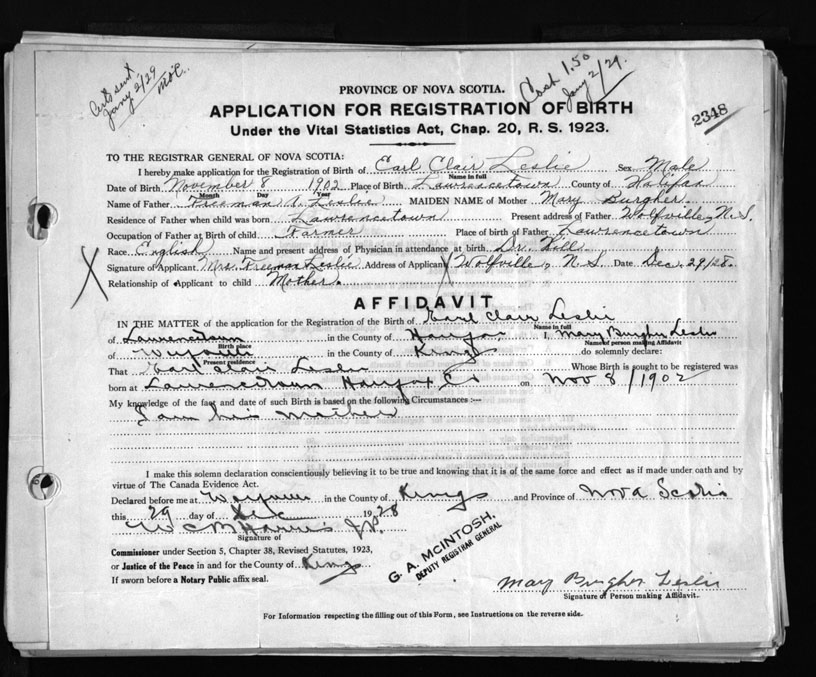 Certs sent
Jany 2/29
McC.
Cash 1.50
Jany 2/29.
2348
PROVINCE OF NOVA SCOTIA.
APPLICATION FOR REGISTRATION OF BIRTH
Under the Vital Statistics Act, Chap. 20, R. S. 1923.
TO THE REGISTRAR GENERAL OF NOVA SCOTIA:
I hereby make application for the Registration of Birth of Earl Clair Leslie Sex Male
Name in full
Date of Birth November 8 1902 Place of Birth Lawrencetown County of Halifax
Month Day Year
Name of Father Freeman A. Leslie MAIDEN NAME of Mother Mary Burgher.
Residence of Father when child was born Lawrencetown Present address of Father Wolfville, N.S.
Occupation of Father at Birth of child Farmer Place of birth of Father Lawrencetown
Race English Name and present address of Physician in attendance at birth Dr. Hill
Signature of Applicant Mrs. Freeman Leslie Address of Applicant Wolfville, N.S. Date Dec. 29/28.
Relationship of Applicant to child Mother.
AFFIDAVIT
IN THE MATTER of the application for the Registration of the Birth of Earl Clair Leslie
Name in full
of Lawrencetown in the County of Halifax I, Mary Burgher Leslie
Birth place Name of person making Affidavit
of Wolfville in the County of Kings do solemnly declare:
Present residence
That Earl Clair Leslie Whose Birth is sought to be registered was
born at Lawrencetown Halifax Co on Nov 8/1902
My knowledge of the fact and date of such Birth is based on the following Circumstances :—
I am his mother
I make this solemn declaration conscientiously believing it to be true and knowing that it is of the same force and effect as if made under oath and by
virtue of The Canada Evidence Act.
Declared before me at Wolfville in the County of Kings and Province of Nova Scotia
this 29 day of Dec 1928
W C M Harris J.P.
Signature of
Commissioner under Section 5, Chapter 38, Revised Statutes, 1923,
or Justice of the Peace in and for the County of Kings
If sworn before a Notary Public affix seal.
G. A. McINTOSH,
DEPUTY REGISTRAR GENERAL
Mary Burgher Leslie
Signature of Person making Affidavit.
For Information respecting the filling out of this Form, see Instructions on the reverse side.